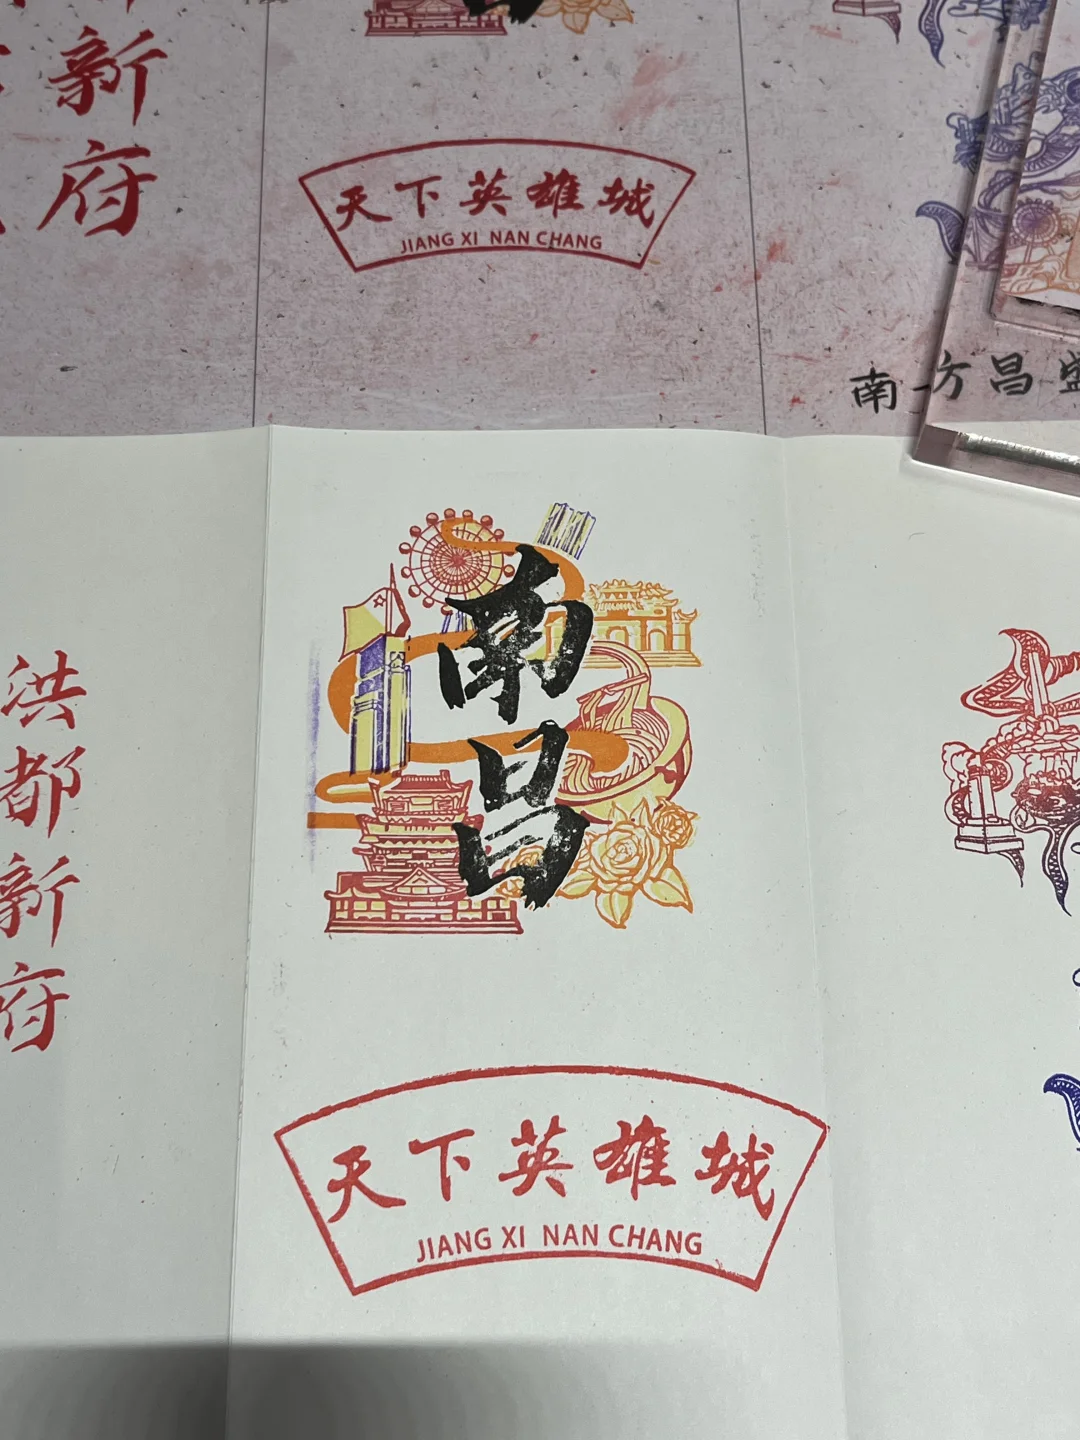 新府
天下英雄城
JIANG XI NAN CHANG
南方昌盛
南昌
洪都新府
天下英雄城
JIANG XI NAN CHANG